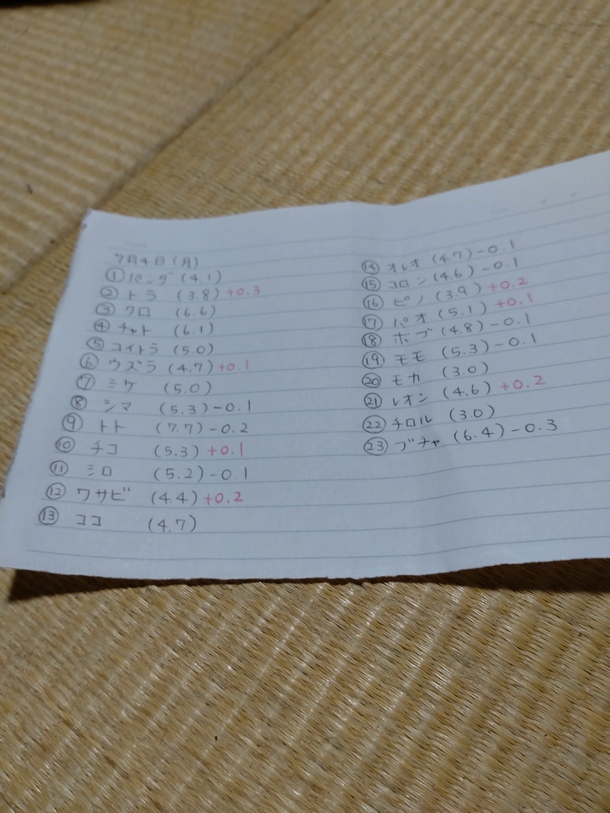 7月4日(月)
① パンダ (4.1)
② トラ (3.8) +0.3
③ クロ (6.6)
④ チャト (6.1)
⑤ コイトラ (5.0)
⑥ ウズラ (4.7) +0.1
⑦ ミケ (5.0)
⑧ シマ (5.3) -0.1
⑨ トト (7.7) -0.2
⑩ チコ (5.3) +0.1
⑪ ミロ (5.2) -0.1
⑫ ワサビ (4.4) +0.2
⑬ ココ (4.7)
⑭ オレオ (4.7) -0.1
⑮ コロン (4.6) -0.1
⑯ ピノ (3.9) +0.2
⑰ パオ (5.1) +0.1
⑱ ボブ (4.8) -0.1
⑲ モモ (5.3) -0.1
⑳ モカ (3.0)
㉑ レオン (4.6) +0.2
㉒ チロル (3.0)
㉓ ブチャ (6.4) -0.3